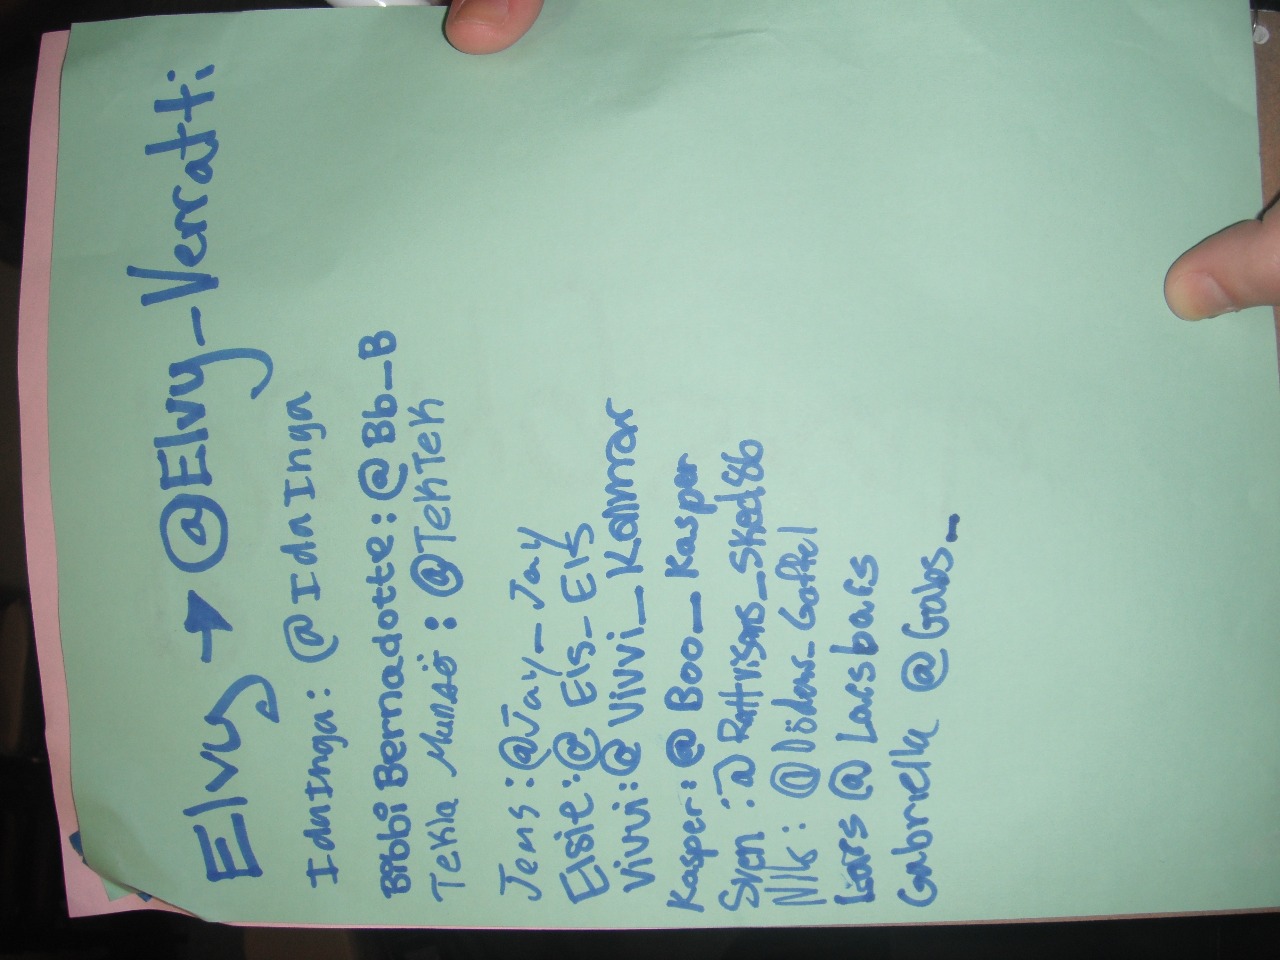 Elvy → @Elvy-Verratti
IdaInga: @IdaInga
Bibbi Bernadotte: @Bb_B
Tekla Munsö: @TekTek
Jens: @Jay_Jay
Elsie: @Els_Els
Vivvi: @Vivvi_Kamrar
Kasper: @Boo_Kasper
Sven: @Rattvisans_Sked86
Nils: @Dödens_Gaffel
Lars @Larsbars
Gabriella @Gabs_